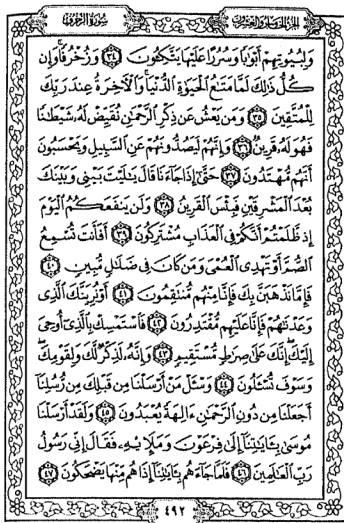 الجزء الخامس والعشرون سورة الزخرف
وَلِبُيُوتِهِمْ أَبْوَٰبًا وَسُرُرًا عَلَيْهَا يَتَّكِـُٔونَ ٣٤ وَزُخْرُفًا وَإِن
كُلُّ ذَٰلِكَ لَمَّا مَتَـٰعُ ٱلْحَيَوٰةِ ٱلدُّنْيَا وَٱلْـَٔاخِرَةُ عِندَ رَبِّكَ
لِلْمُتَّقِينَ ٣٥ وَمَن يَعْشُ عَن ذِكْرِ ٱلرَّحْمَـٰنِ نُقَيِّضْ لَهُۥ شَيْطَـٰنًا
فَهُوَ لَهُۥ قَرِينٌ ٣٦ وَإِنَّهُمْ لَيَصُدُّونَهُمْ عَنِ ٱلسَّبِيلِ وَيَحْسَبُونَ
أَنَّهُم مُّهْتَدُونَ ٣٧ حَتَّىٰٓ إِذَا جَآءَنَا قَالَ يَـٰلَيْتَ بَيْنِى وَبَيْنَكَ
بُعْدَ ٱلْمَشْرِقَيْنِ فَبِئْسَ ٱلْقَرِينُ ٣٨ وَلَن يَنفَعَكُمُ ٱلْيَوْمَ
إِذ ظَّلَمْتُمْ أَنَّكُمْ فِى ٱلْعَذَابِ مُشْتَرِكُونَ ٣٩ أَفَأَنتَ تُسْمِعُ
ٱلصُّمَّ أَوْ تَهْدِى ٱلْعُمْىَ وَمَن كَانَ فِى ضَلَـٰلٍ مُّبِينٍ ٤٠
فَإِمَّا نَذْهَبَنَّ بِكَ فَإِنَّا مِنْهُم مُّنتَقِمُونَ ٤١ أَوْ نُرِيَنَّكَ ٱلَّذِى
وَعَدْنَـٰهُمْ فَإِنَّا عَلَيْهِم مُّقْتَدِرُونَ ٤٢ فَٱسْتَمْسِكْ بِٱلَّذِىٓ أُوحِىَ
إِلَيْكَ إِنَّكَ عَلَىٰ صِرَٰطٍ مُّسْتَقِيمٍ ٤٣ وَإِنَّهُۥ لَذِكْرٌ لَّكَ وَلِقَوْمِكَ
وَسَوْفَ تُسْـَٔلُونَ ٤٤ وَسْـَٔلْ مَنْ أَرْسَلْنَا مِن قَبْلِكَ مِن رُّسُلِنَآ
أَجَعَلْنَا مِن دُونِ ٱلرَّحْمَـٰنِ ءَالِهَةً يُعْبَدُونَ ٤٥ وَلَقَدْ أَرْسَلْنَا
مُوسَىٰ بِـَٔايَـٰتِنَآ إِلَىٰ فِرْعَوْنَ وَمَلَإِي۟هِۦ فَقَالَ إِنِّى رَسُولُ
رَبِّ ٱلْعَـٰلَمِينَ ٤٦ فَلَمَّا جَآءَهُم بِـَٔايَـٰتِنَآ إِذَا هُم مِّنْهَا يَضْحَكُونَ ٤٧
٤٩٢